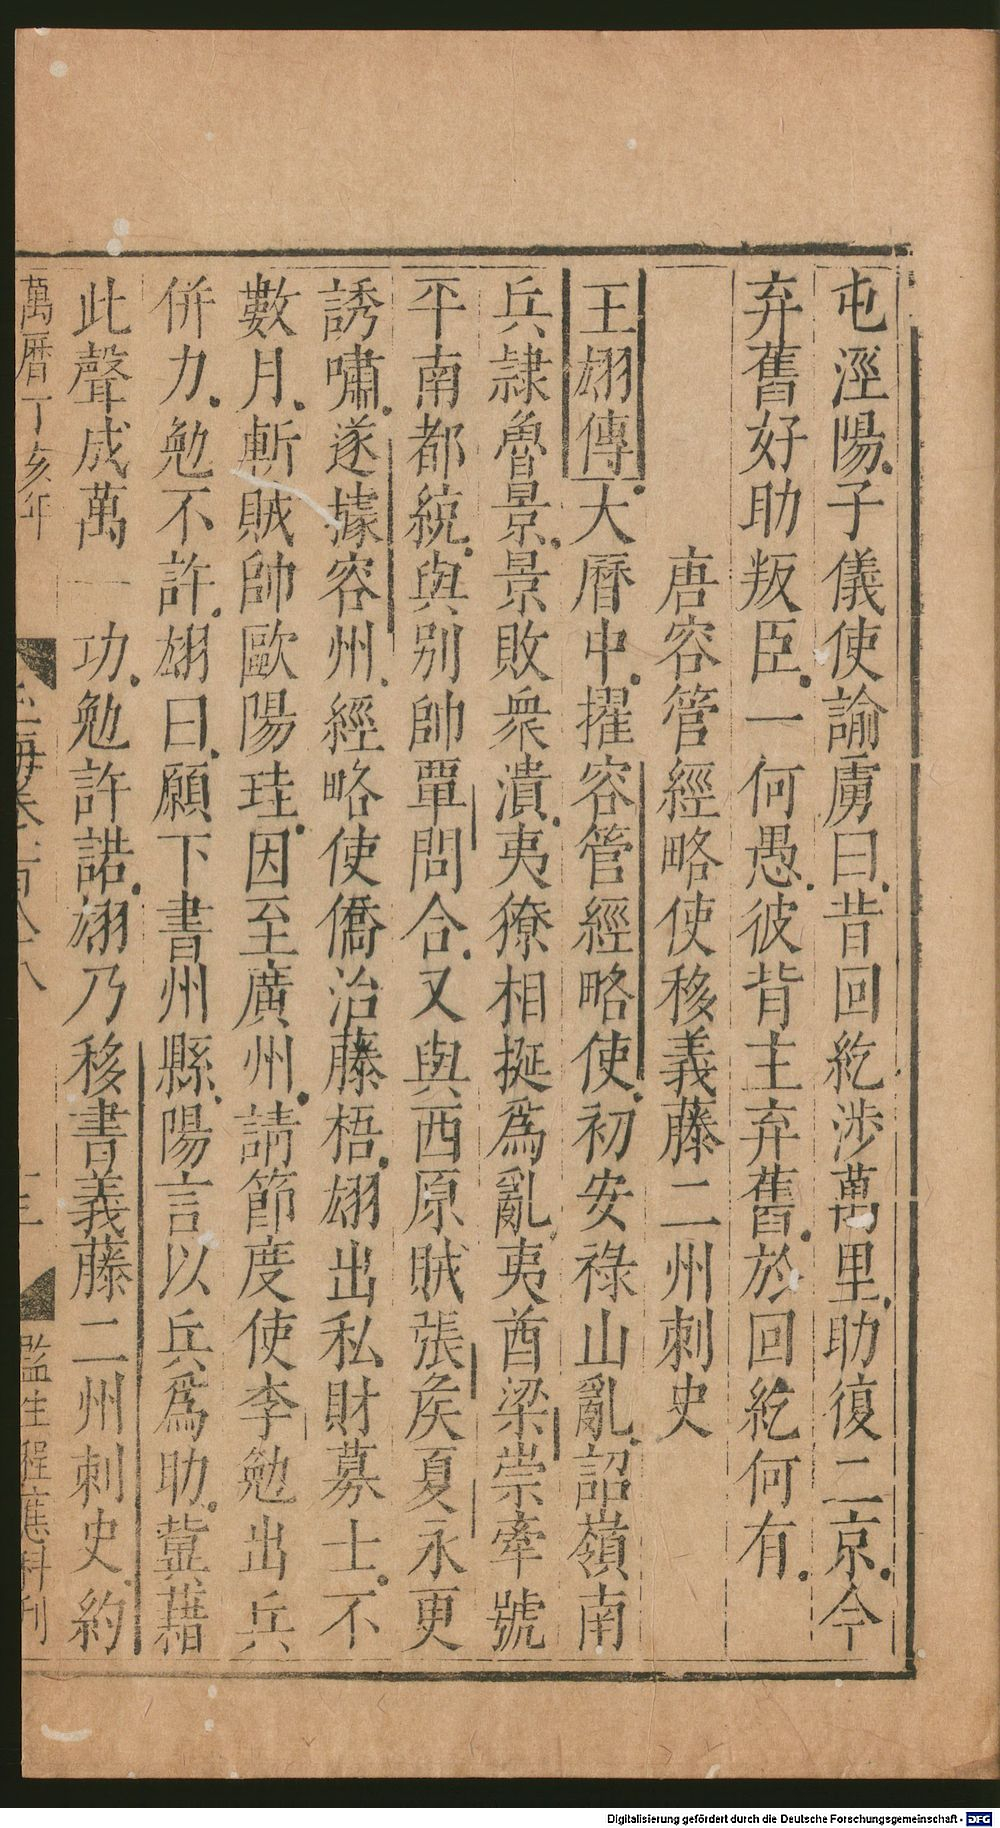 屯涇陽子儀使諭虜曰昔回紇涉萬里助復二京今
弃舊好助叛臣一何愚彼背主弃舊於回紇何有
唐容管經略使移義藤二州刺史
王翃傳大曆中擢容管經略使初安祿山亂詔嶺南
兵隷魯景景敗衆潰夷獠相挻爲亂夷酋梁崇牽號
平南都統與别帥覃問合又與西原賊張矦夏永更
誘嘯遂據容州經略使僑治藤梧翃出私財募士不
數月斬賊帥歐陽珪因至廣州請節度使李勉出兵
併力勉不許翃曰願下書州縣陽言以兵爲助冀藉
此聲成萬一功勉許諾翃乃移書義藤二州刺史約
萬曆丁亥年
玉海卷一百八十八
十三
監生程應科刊
Digitalisierung gefördert durch die Deutsche Forschungsgemeinschaft - DFG